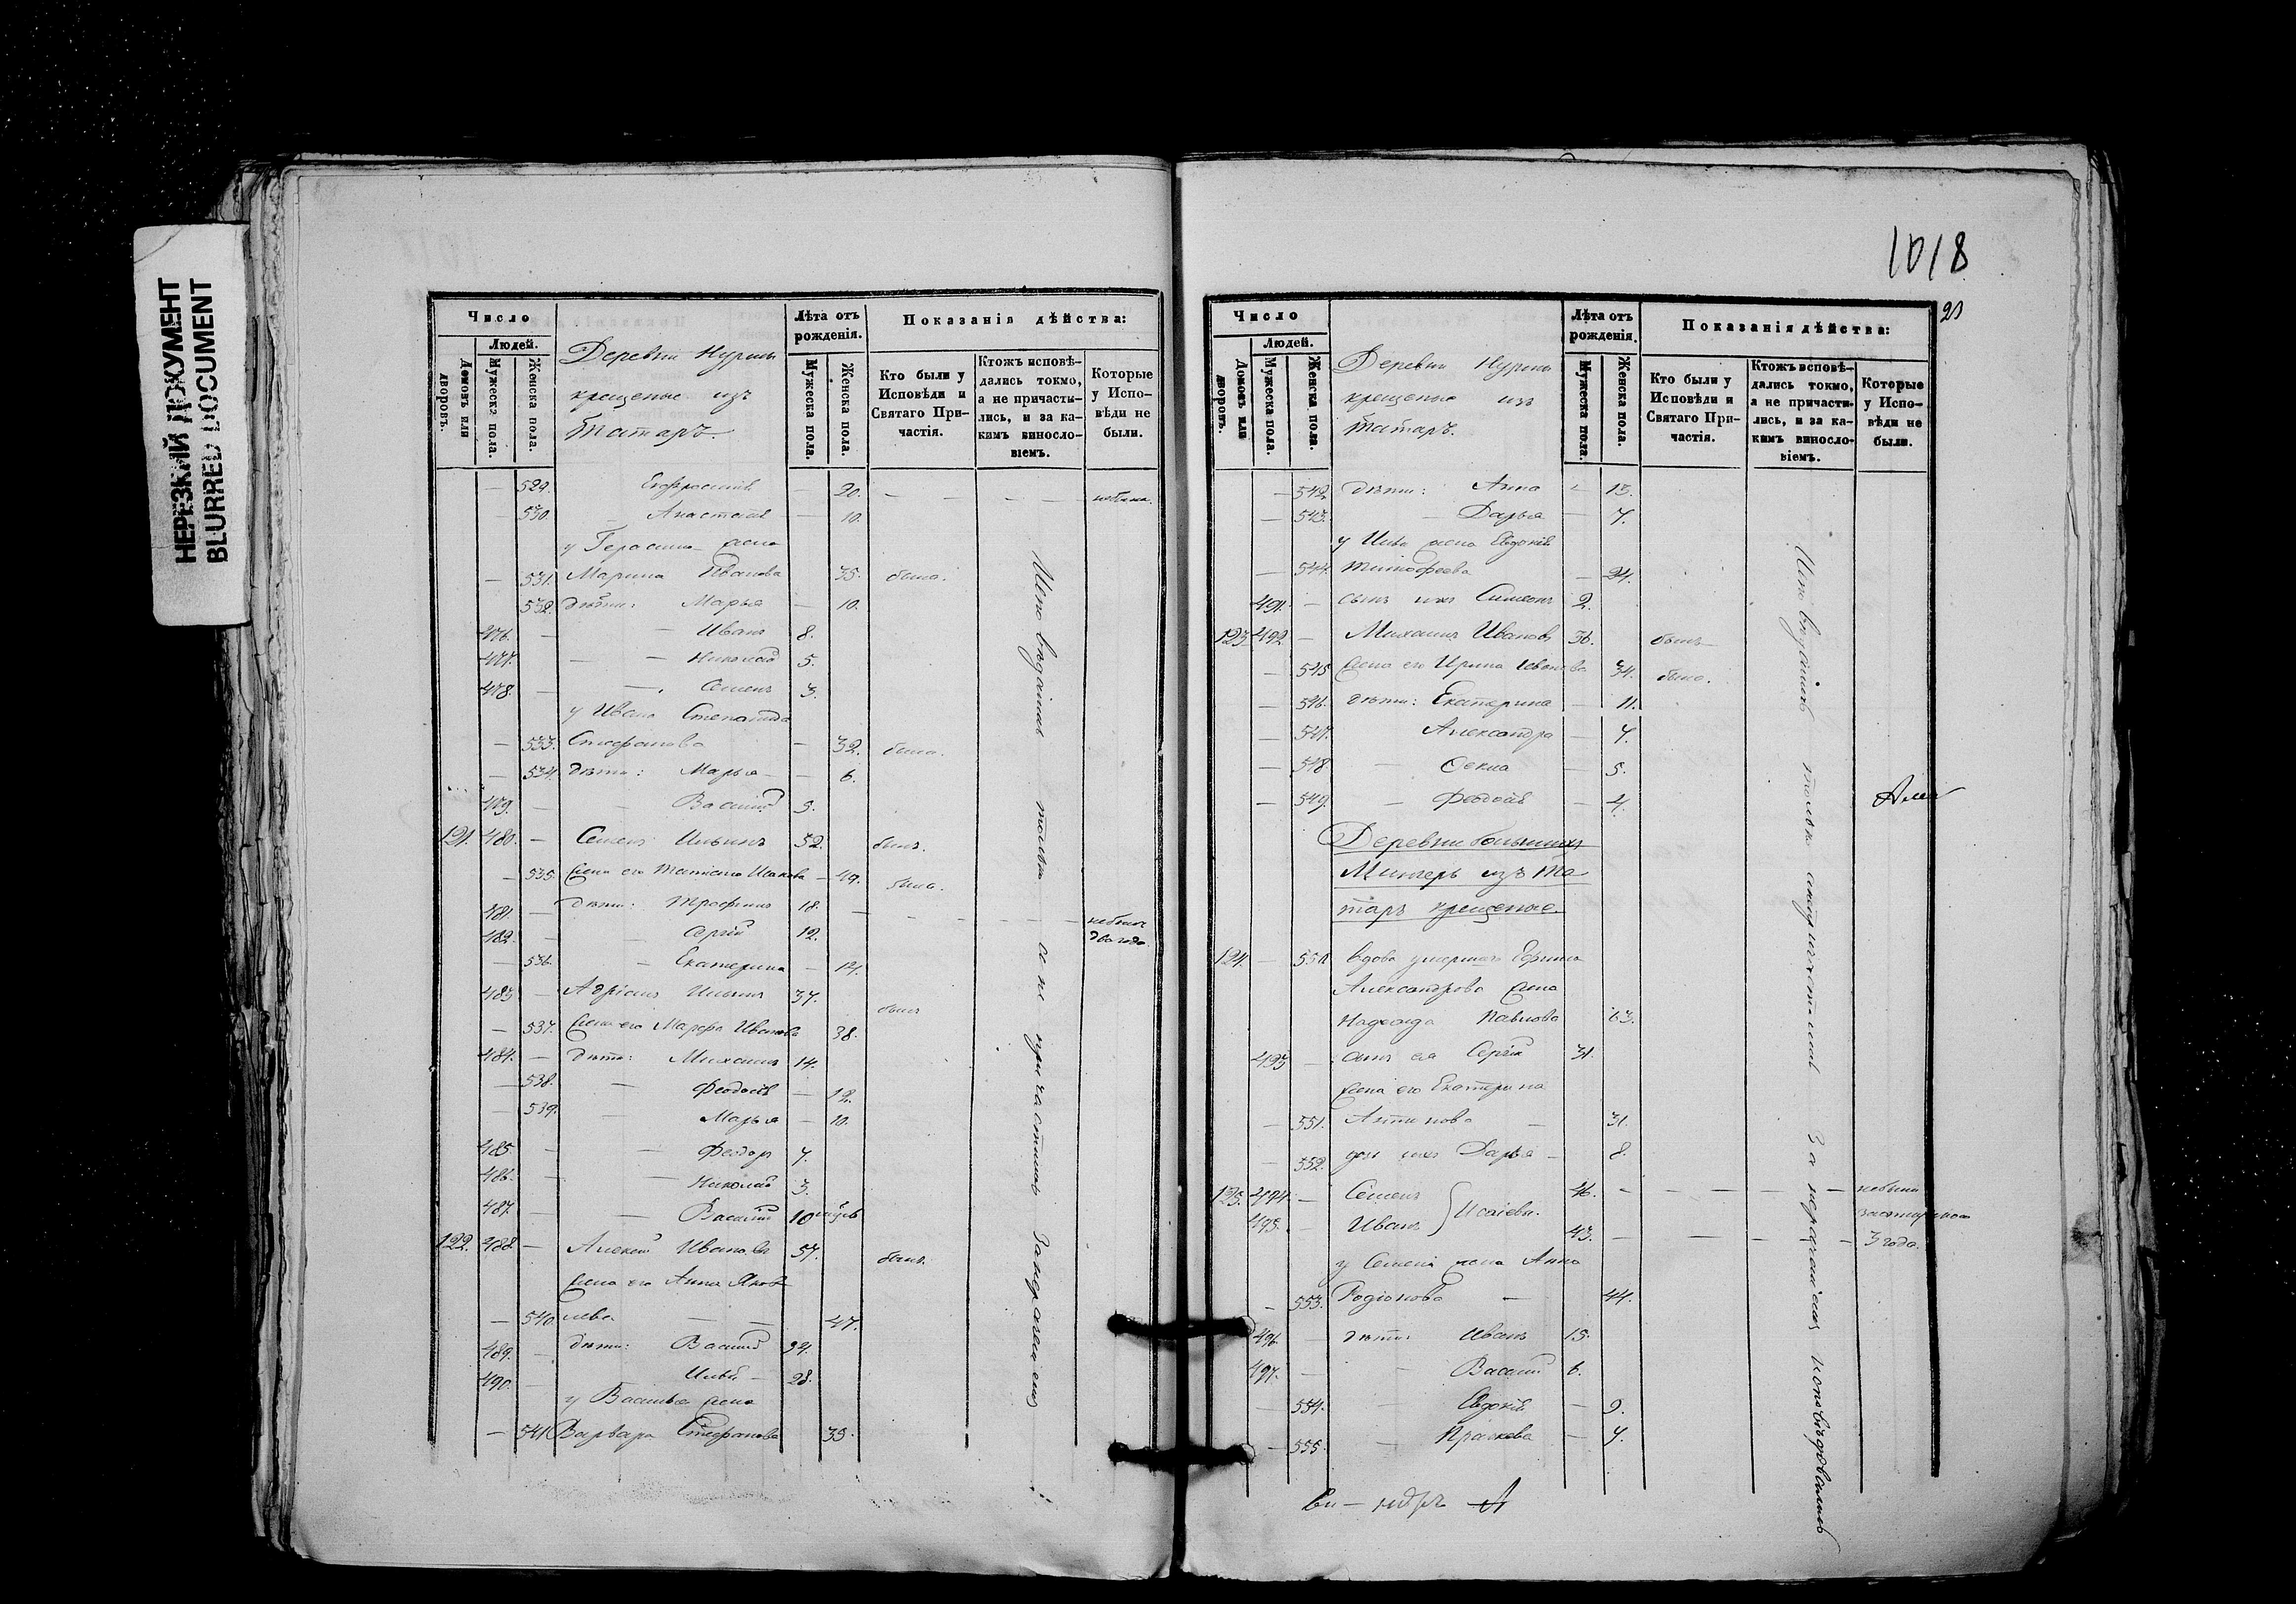 НЕРЕЗКИЙ ДОКУМЕНТ
BLURRED DOCUMENT
Число
Людей.
Домовъ или дворовъ.
Мужеска пола.
Женска пола.
Деревни Нурмы
крещеные изъ
Татаръ.
Лѣта отъ рожденія.
Мужеска пола.
Женска пола.
Показанія дѣйства:
Кто были у Исповѣди и Святаго Причастія.
Ктожъ исповѣдались токмо, а не причастились, и за какимъ винословіемъ.
Которые у Исповѣди не были.
— 529. Евфросинія — 20. — — — — небыла.
— 530. — Анастасія — 10.
у Герасима жена
— 531. Марина Иванова 35. была.
532. дѣти: Марья — 10.
476. — — Иванъ 8.
477. — — Николай 5.
478. — — Семенъ 3.
у Ивана Степанида
— 533. Стефанова — 32. была.
— 534. дѣти: Марья — — 6.
479. — — Василій 3.
121. 480. — Семенъ Ильинъ 52. былъ.
— 535. Жена его Татіана Исакова — 49. была.
481. — дѣти: Трофимъ 18. — — — — — небылъ
482. — — Сергій 12. два года.
— 536. — Екатерина — 14.
483. — Адріанъ Ильинъ 37. былъ
— 537. Жена его Марфа Иванова 38.
484. — дѣти: Михаилъ 14.
— 538. — Феодосія — 12.
— 539. — Марья — 10.
485. — — Феодоръ 7.
486. — — Николай 3.
487. — — Василій 10
122. 488. — Алексей Ивановъ 57. былъ.
Жена его Анна Яков
— 540. лева — — 47.
489. — дѣти: Василій 34.
490. — Илья — 28.
у Василья жена
— 541. Варвара Стефанова 33.
Исповѣдались только а не причастились за нераченіемъ
1018
21
Число
Людей.
Домовъ или дворовъ.
Мужеска пола.
Женска пола.
Деревни Нурмы
крещеные изъ
Татаръ.
Лѣта отъ рожденія.
Мужеска пола.
Женска пола.
Показанія дѣйства:
Кто были у Исповѣди и Святаго Причастія.
Ктожъ исповѣдались токмо, а не причастились, и за какимъ винословіемъ.
Которые у Исповѣди не были.
— 542. дѣти: Анна — 13.
— 543. — Дарья — 7.
у Ильи жена Евдокія
— 544. Тимофеева — 24.
491. — сынъ ихъ Симеонъ 2.
123. 492. — Михаилъ Ивановъ 36. былъ
— 545. Жена его Ирина Иванова 34. была.
— 546. дѣти: Екатерина — 11.
— 547. Александра — 7.
— 548. — Фекла — 5.
— 549. — Феодосія — 4.
Деревни большихъ
Мингеръ изъ Та
таръ крещеные.
124. — 550. вдова умершаго Ефрима
Александрова жена
Надежда Павлова 63.
493. — сынъ ея Сергій 31.
Жена его Екатерина
— 551. Антипова — 31.
— 552. дочь ихъ Дарья — 8.
125. 494. — Семенъ 46. — — — — — небыли
495. — Иванъ } Исаіевы. 43. — — — — 3 года.
у Семена жена Анна
— 553. Родіонова — 44.
496. — дѣти: Иванъ 15.
497. — — Василій 6.
— 554. — Евдокія — 9.
— 555. — Прасковья — 7.
Исповѣдались только а непричастились за нераченіемъ